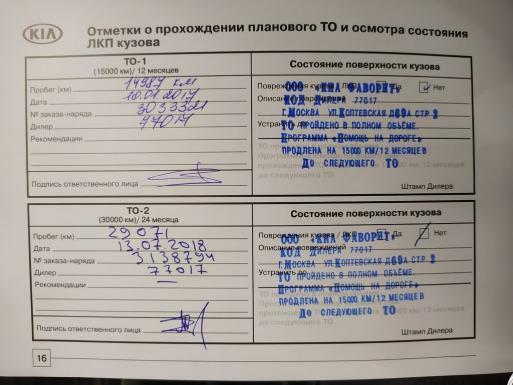 KIA
Отметки о прохождении планового ТО и осмотра состояния
ЛКП кузова
ТО-1
(15000 км)/ 12 месяцев
Пробег (км) 14987 км
Дата
№ заказа-наряда 3033321
Дилер 77017
Рекомендации
Подпись ответственного лица
Состояние поверхности кузова
Повреждения кузова / ЛКП Да Нет
ООО «КИА ФАВОРИТ»
Описание повреждений
КОД ДИЛЕРА 77017
Г.МОСКВА УЛ.КОПТЕВСКАЯ Д69А СТР 2
Устранить до
ТО ПРОЙДЕНО В ПОЛНОМ ОБЪЕМЕ.
ПРОГРАММА «ПОМОЩЬ НА ДОРОГЕ»
ПРОДЛЕНА НА 15000 КМ/12 МЕСЯЦЕВ
ДО СЛЕДУЮЩЕГО ТО
Штамп Дилера
ТО-2
(30000 км)/ 24 месяца
Пробег (км) 29071
Дата 13.07.2018
№ заказа-наряда 3138794
Дилер 77017
Рекомендации —
Подпись ответственного лица
Состояние поверхности кузова
Повреждения кузова / ЛКП Да Нет
ООО «КИА ФАВОРИТ»
Описание повреждений
КОД ДИЛЕРА 77017
Г.МОСКВА УЛ.КОПТЕВСКАЯ Д69А СТР 2
Устранить до
ТО ПРОЙДЕНО В ПОЛНОМ ОБЪЕМЕ.
ПРОГРАММА «ПОМОЩЬ НА ДОРОГЕ»
ПРОДЛЕНА НА 15000 КМ/12 МЕСЯЦЕВ
ДО СЛЕДУЮЩЕГО ТО
Штамп Дилера
16